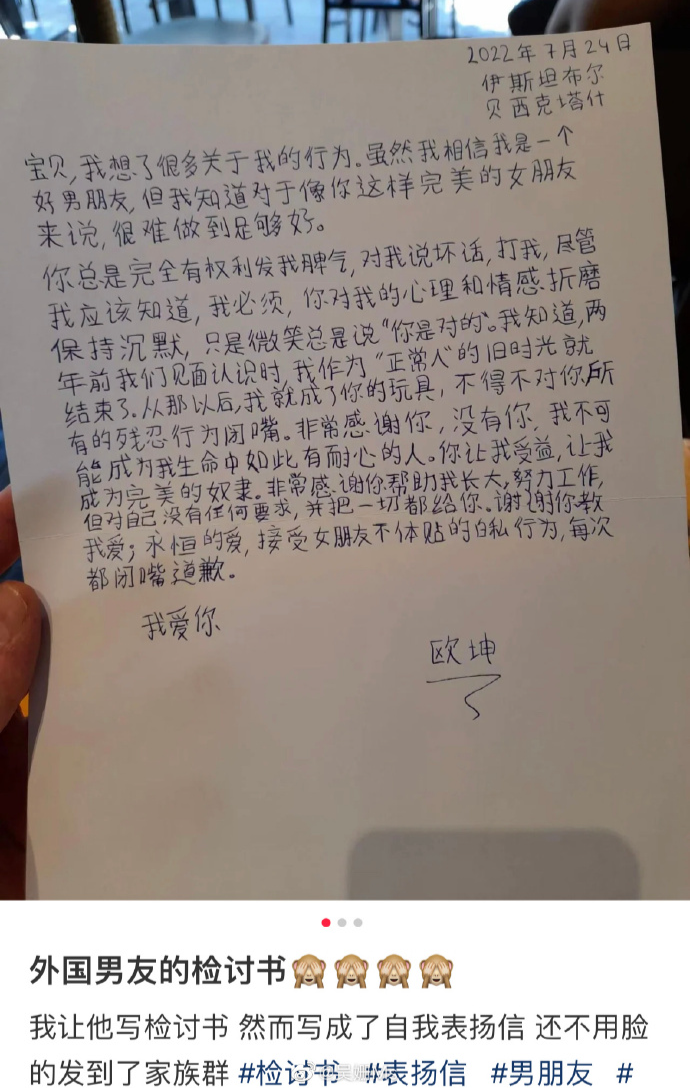 2022年7月24日
伊斯坦布尔
贝西克塔什
宝贝,我想了很多关于我的行为。虽然我相信我是一个
好男朋友,但我知道对于像你这样完美的女朋友
来说,很难做到足够好。
你总是完全有权利发我脾气,对我说坏话,打我,尽管
我应该知道,我必须,你对我的心理和情感折磨
保持沉默,只是微笑总是说“你是对的”。我知道,两
年前我们见面认识时,我作为“正常人”的旧时光就
结束了。从那以后,我就成了你的玩具,不得不对你所
有的残忍行为闭嘴。非常感谢你,没有你,我不可
能成为我生命中如此有耐心的人。你让我受益,让我
成为完美的奴隶。非常感谢你帮助我长大,努力工作,
但对自己没有任何要求,并把一切都给你。谢谢你教
我爱;永恒的爱,接受女朋友不体贴的自私行为,每次
都闭嘴道歉。
我爱你
欧坤
外国男友的检讨书🙈🙈🙈🙈
我让他写检讨书 然而写成了自我表扬信 还不用脸
的发到了家族群 #检讨书 #表扬信 #男朋友 #